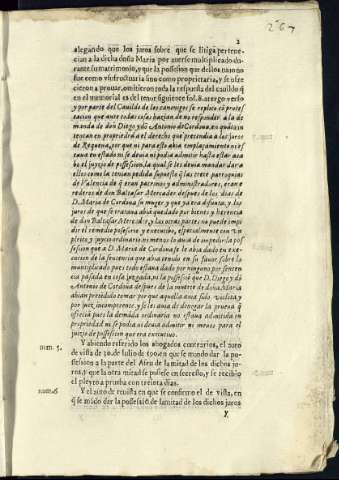 267
2
alegando que los juros sobre que se litiga pertene-
cian a la dicha doña Maria por auerse multiplicado du-
rante su matrimonio, y que la possession que dellos tuuo no
fue como vsufructuaria sino como proprietaria, y se ofre
cieron a prouar, omitieron toda la respuesta del cauildo q̃
en el memorial es del tenor siguiente fol. 8. atergo verso
y por parte del Cauildo de los canonigos se replico cõ protes
tacion que ante todas cosas hazian de no responder a la de
manda de don Diego y dõ Antonio de Cordoua, en quãto in
tentan en propriedad el derecho que pretendia a los juros
de Requena, por que ni para esto auia emplazamiento ni es
taua en estado ni se deuia ni podia admitir hasta estar aca
bo el juyzio de possession, la qual se les deuia mandar dar a
ellos como la tenian pedida supuesto q̃ las trece parroquias
de Valencia de q̃ eran patronos y administradores, eran e
rederos de don Baltasar Mercader despues de los dias de
D. Maria de Cordoua su muger y que ya era difunta, y los
juros de que se trataua auia quedado por bienes y herencia
de don Baltasar Mercader, y las otras partes no puede impe
dir el remedio possessorio y executiuo, especialmente con vn
pleyto y juycio ordinario ni menos lo auia de impedir la pos
session que a D. Maria de Cordoua se le auia dado en exe-
cucion de la sentencia que auia tenido en su fauor sobre lo
multiplicado pues todo estaua dado por ninguno por senten
cia passada en cosa juzgada, ni la possessiõ que D. Diego y dõ
Antonio de Cordoua despues de la muerte de doña Maria
abian pretendido tomar por que aquella auia sido violenta y
por juez incompetente, y se les auia de denegar la prueua q̃
ofrecia pues la demanda ordinaria no estaua admitida en
propriedad ni se podia ni deuia admitir ni menos para el
juyzio de possession que era executiuo.
num. 5. Y abiendo referido los abogados contrarios, el auto
de vista de 20. de Iulio de 1600. en que se mando dar la po-
session a la parte del Asseu de la mitad de los dichos ju-
ros, y que la otra mitad se pusiese en secresto, y se recibio
el pleyto a prueua con treinta dias.
num. 6 Y el auto de reuista en que se confirmo el de vista, en
q̃ se mãdo dar la possessiõ de la mitad de los dichos juros
Y